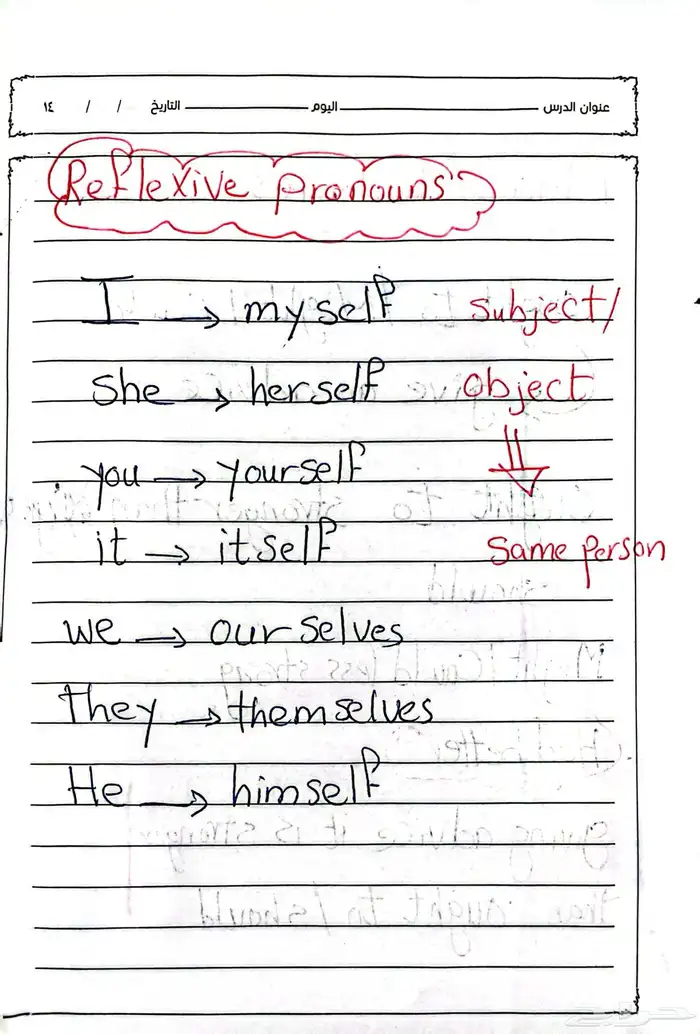 عنوان الدرس اليوم التاريخ / / ١٤
Reflexive pronouns
I → myself subject/
she → herself object
you → yourself ⇓
it → itself same person
we → ourselves
they → themselves
He → himself